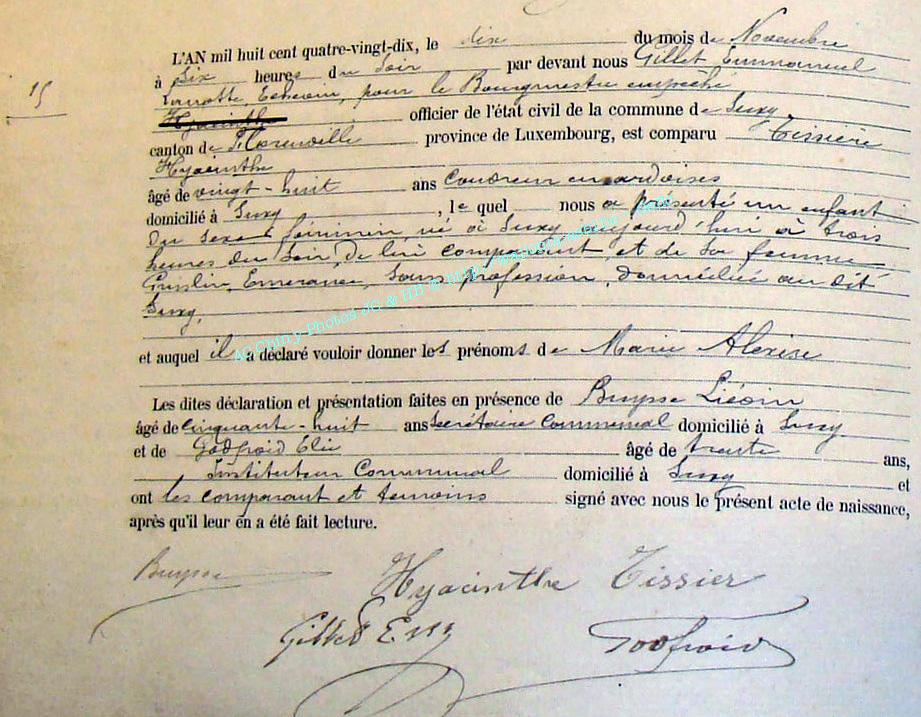 15
L'AN mil huit cent quatre-vingt-dix, le dix du mois de Novembre
à Six heures du Soir par devant nous Gillet Emmanuel
Echevin, pour le Bourgmestre empêché
Hyacinthe officier de l'état civil de la commune de Suxy
canton de Florenville province de Luxembourg, est comparu Tissière
Hyacinthe
âgé de vingt-huit ans Couvreur en ardoises
domicilié à Suxy, le quel nous a présenté un enfant
du sexe féminin, né à Suxy aujourd'hui à trois
heures du Soir, de lui comparant et de sa femme
Emerance, Sans profession, domiciliée au dit
Suxy.
et auquel il a déclaré vouloir donner les prénoms de Marie Alexise
Les dites déclaration et présentation faites en présence de Buysse Liévin
âgé de Cinquante-huit ans Secrétaire Communal domicilié à Suxy
et de Godfroid Elie âgé de trente ans,
Instituteur Communal domicilié à Suxy et
ont les comparant et temoins signé avec nous le présent acte de naissance,
après qu'il leur en a été fait lecture.
Buysse Hyacinthe Tissier
Gillet Godfroid